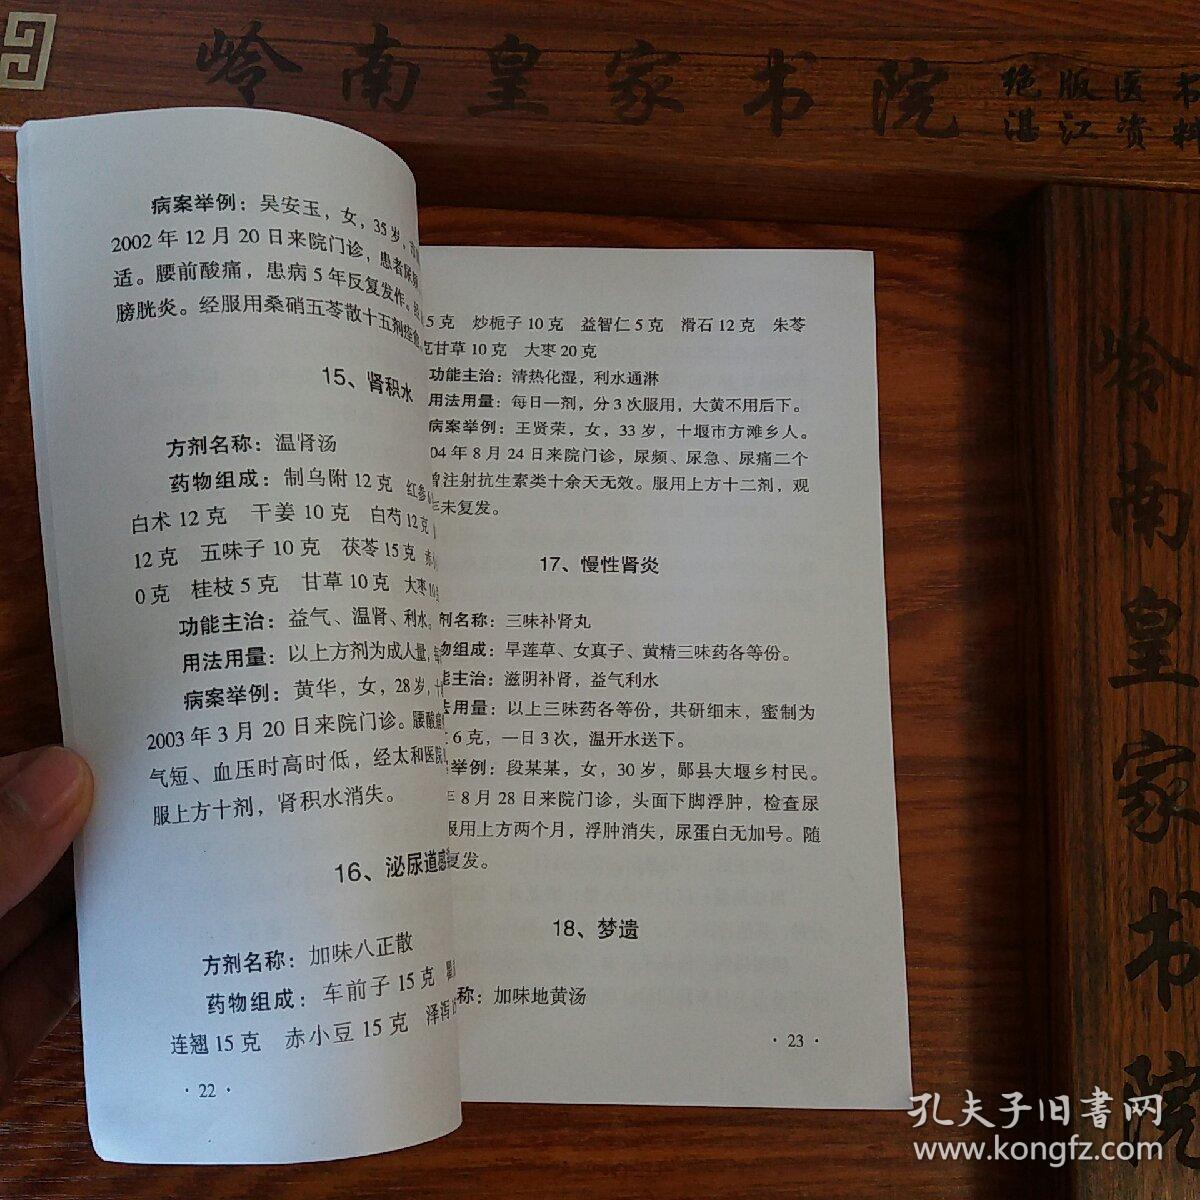 岭南皇家书院
绝版医书
湛江资料
病案举例：吴安玉，女，35岁，
2002年12月20日来院门诊，患者尿
适。腰前酸痛，患病5年反复发作。
膀胱炎。经服用桑硝五苓散十五剂痊愈
15、肾积水
方剂名称：温肾汤
药物组成：制乌附12克 红参
白术12克 干姜10克 白芍12克
12克 五味子10克 茯苓15克
0克 桂枝5克 甘草10克 大枣10
功能主治：益气、温肾、利水。
用法用量：以上方剂为成人量，
病案举例：黄华，女，28岁，
2003年3月20日来院门诊。腰酸
气短、血压时高时低，经太和医院
服上方十剂，肾积水消失。
16、泌尿道感
方剂名称：加味八正散
药物组成：车前子15克
连翘15克 赤小豆15克 泽泻
·22·
5克 炒栀子10克 益智仁5克 滑石12克 朱苓
克甘草10克 大枣20克
功能主治：清热化湿，利水通淋
用法用量：每日一剂，分3次服用，大黄不用后下。
病案举例：王贤荣，女，33岁，十堰市方滩乡人。
04年8月24日来院门诊，尿频、尿急、尿痛二个
曾注射抗生素类十余天无效。服用上方十二剂，观
三未复发。
17、慢性肾炎
剂名称：三味补肾丸
物组成：旱莲草、女真子、黄精三味药各等份。
能主治：滋阴补肾，益气利水
法用量：以上三味药各等份，共研细末，蜜制为
6克，一日3次，温开水送下。
举例：段某某，女，30岁，郧县大堰乡村民。
年8月28日来院门诊，头面下脚浮肿，检查尿
服用上方两个月，浮肿消失，尿蛋白无加号。随
复发。
18、梦遗
称：加味地黄汤
·23·
岭南皇家书院
孔夫子旧书网
www.kongfz.com